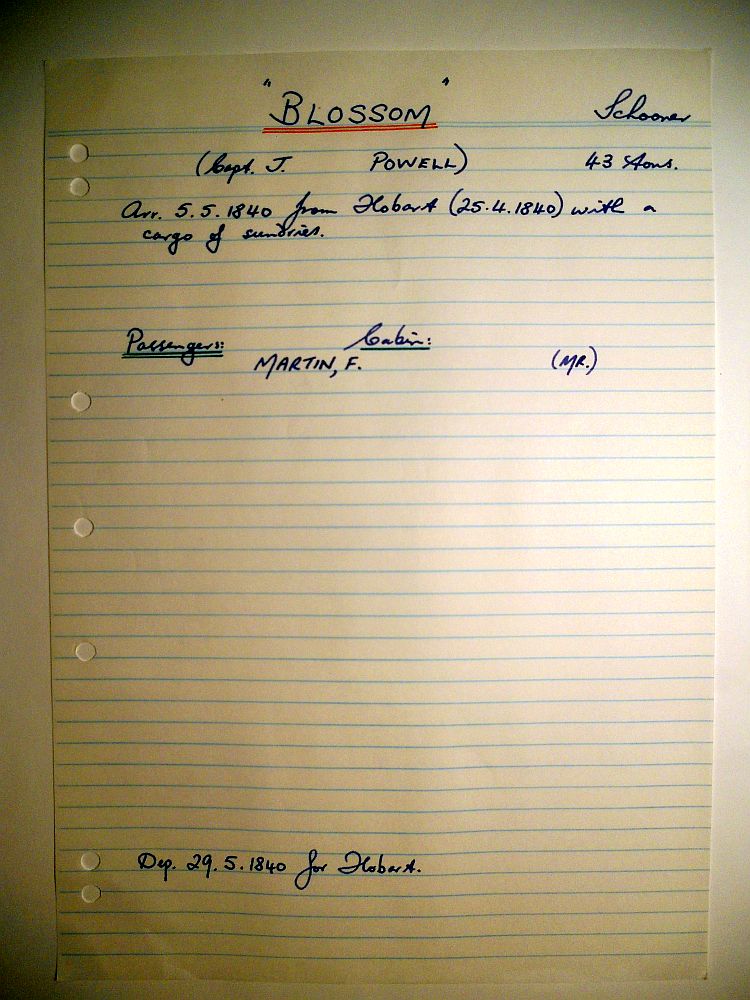 "BLOSSOM" Schooner
(Capt. J. POWELL) 43 tons.
Arr. 5.5.1840 from Hobart (25.4.1840) with a
cargo of sundries.
Passengers: Cabin:
MARTIN, F. (MR.)
Dep. 29.5.1840 for Hobart.